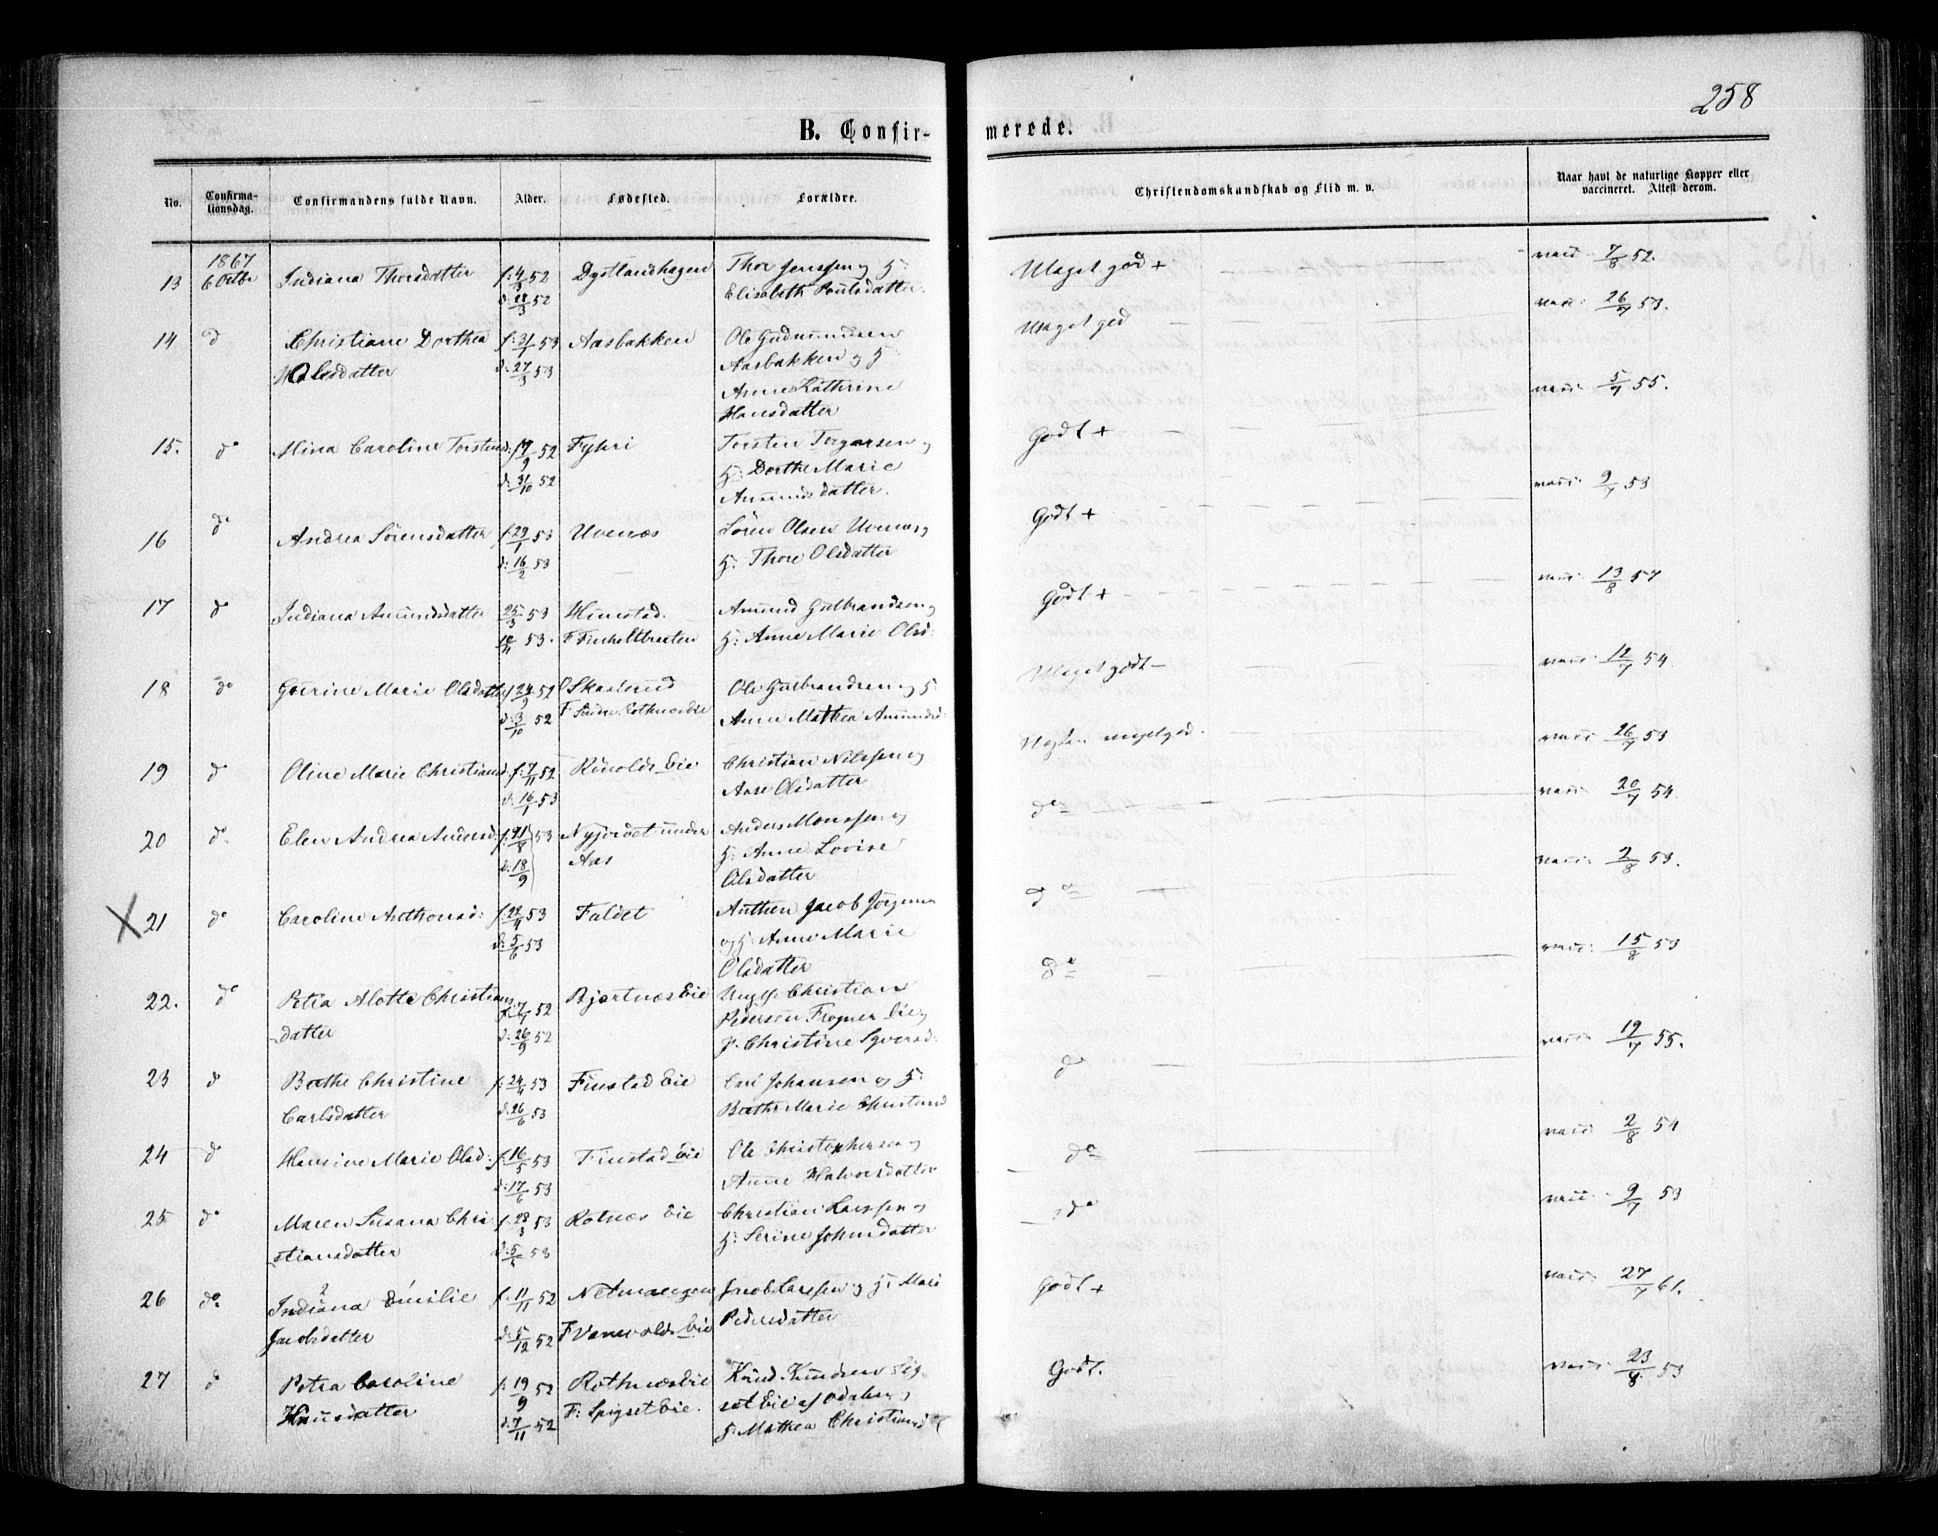 258
B. Confir- merede.
No. Confirma-tionsdag. Confirmandens fulde Navn. Alder. Fødested. Forældre. Christendomskundskab og Flid m. v. Naar havt de naturlige Kopper eller vaccineret. Attest derom.
1867
13 6 Octbr Indiana Thorsdatter f: 4/3 52 Thor Jenssen og H: Meget god + vacc: 7/8 52.
d: 28/3 52 Elisabeth Poulsdatter.
14 d Christiane Dorthea f: 31/1 53 Aasbakken Ole Gudmundsen Meget god vacc: 26/7 53.
Olesdatter d: 27/3 53 Aasbakken og H:
Anne Kathrine
Hansdatter
15. do Mina Caroline Torstensd: f: 19/9 52 Fykri Torsten Torgersen og Godt + vacc: 5/7 55.
d: 31/10 52 H: Dorthe Marie
Amundsdatter.
16 do Andrea Sørensdatter f: 29/1 53 Uvenæs Søren Olsen Uvenæs og Godt + vacc: 9/7 53
d: 16/2 53 H: Thore Olsdatter
17 do Indiana Amundsdatter 25/3 53 Amund Gulbrandsen og Godt + vacc: 13/8 57
53. H: Anne Marie Olsd:
18 do Marie Olsdatter f: 24/9 52 Ole Gulbrandsen og H: Meget godt- vacc: 12/7 54.
d: 3/10 52 Anne Mathea Amundsd:
19 do Oline Marie Christiansd: f: 7/11 52 Eie Christian Nilssen og Næsten meget god. vacc 26/7 53
d: 16/1 53 Aase Olsdatter
20 do Elen Andrea Andersd: f: 21/8 53 Nyjordet under Anders Monssen og do vacc: 20/7 54.
d: 18/9 Aas H: Anne Lovise
Olsdatter
X 21 do Caroline Anthonsd: f: 22/4 53 Faldet Anthon Jacob Jørgensen do vacc: 2/8 53.
d: 5/6 53 og H: Anne Marie
Olsdatter
22. do Petra Alotte Christians 52 Bjertnæs Eie Ungk: Christian do vacc: 15/8 53
datter d: 26/9 52 Pedersen Frogner Eie og
P. Christine Syversd:
23 d Berthe Christine f: 24/4 53 Finstad Eie Carl Johansen og H: do vacc: 19/7 55.
Carlsdatter d: 26/6 53 Berthe Marie
24 d Hansine Marie Olsd: f: 16/5 53 Finstad Eie Ole Christophersen og do vacc: 2/8 54
d: 17/6 53 Anne Halvorsdatter
25 do Maren Susana Chri f: 28/3 53 Rotnæs Eie Christian Larssen og do vacc: 9/7 53
stiansdatter d: 5/5 53 H: Serine Johnsdatter
26 do Indiana Emilie f: 11/11 52 Jacob Larssen og H: Mari Godt + vacc: 27/7 61.
Jacobsdatter d: 5/12 52 Eie Pedersdatter
27 d Petra Caroline f: 19/9 52 Rothnæs Eie Knud Knudsen Spig- Godt. vacc: 23/8 53
Knudsdatter d: 7/11 52 F: Spigset Eie. set Eie af Odalen og
H: Mathea Christiansd: